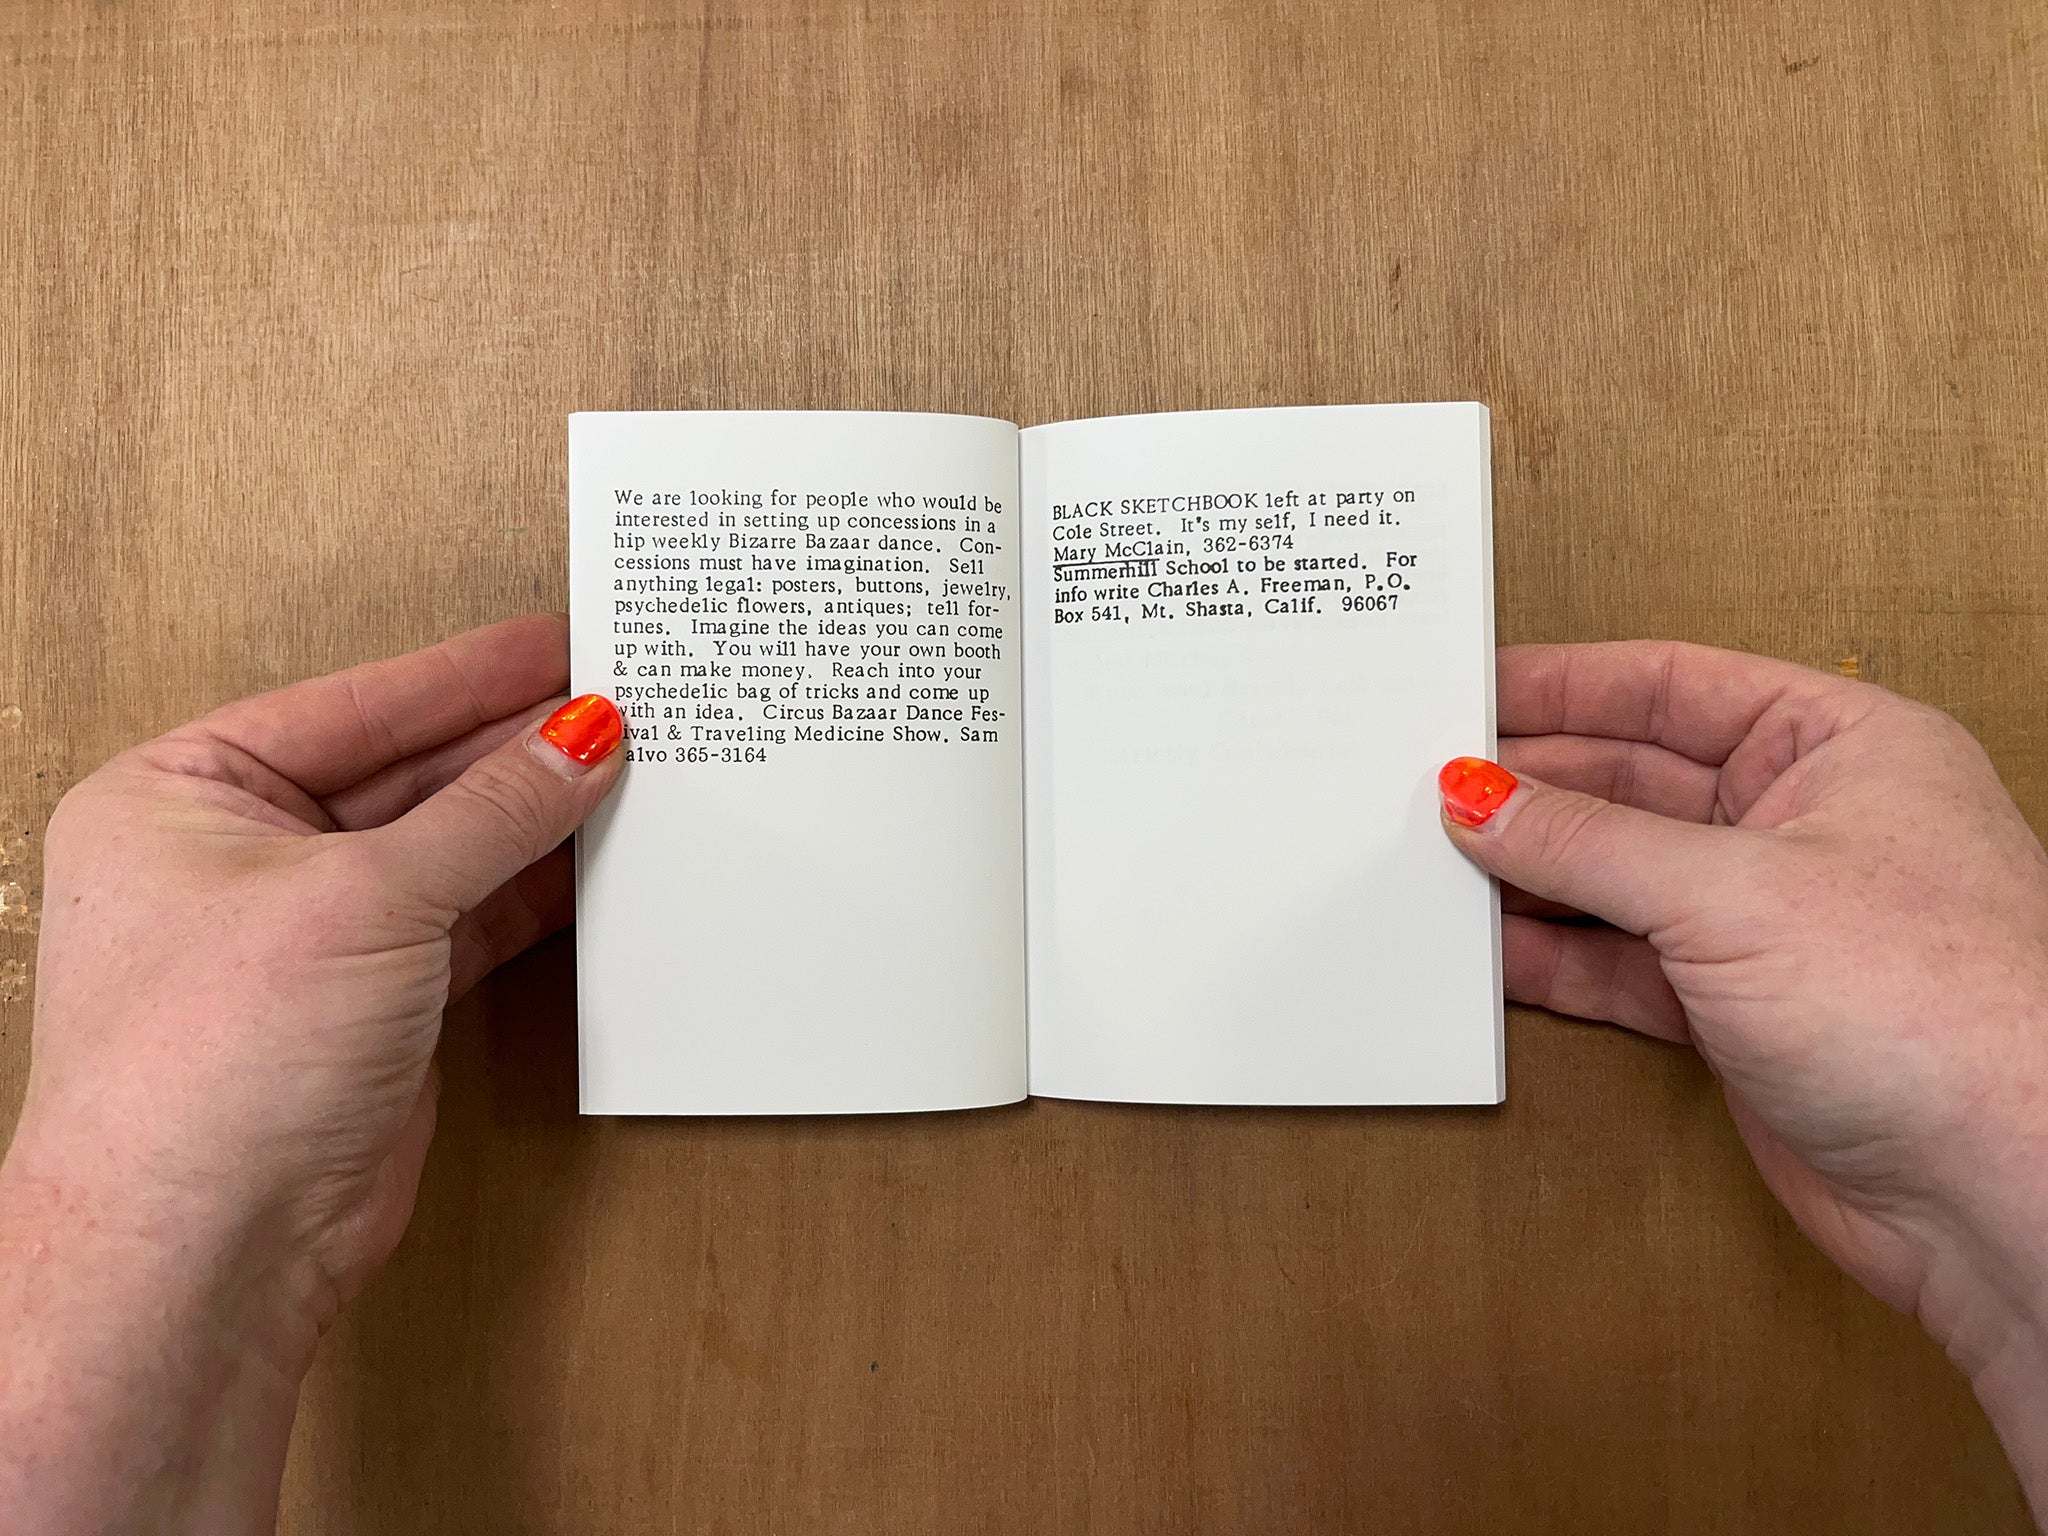 We are looking for people who would be
interested in setting up concessions in a
hip weekly Bizarre Bazaar dance. Con-
cessions must have imagination. Sell
anything legal: posters, buttons, jewelry,
psychedelic flowers, antiques; tell for-
tunes. Imagine the ideas you can come
up with. You will have your own booth
& can make money. Reach into your
psychedelic bag of tricks and come up
with an idea. Circus Bazaar Dance Fes-
ival & Traveling Medicine Show. Sam
alvo 365-3164
BLACK SKETCHBOOK left at party on
Cole Street. It's my self, I need it.
Mary McClain, 362-6374
Summerhill School to be started. For
info write Charles A. Freeman, P.O.
Box 541, Mt. Shasta, Calif. 96067